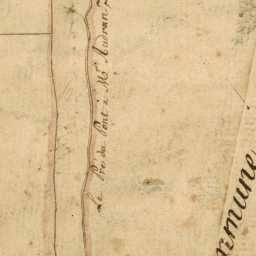 Le Pré du Pont à Mr Audran